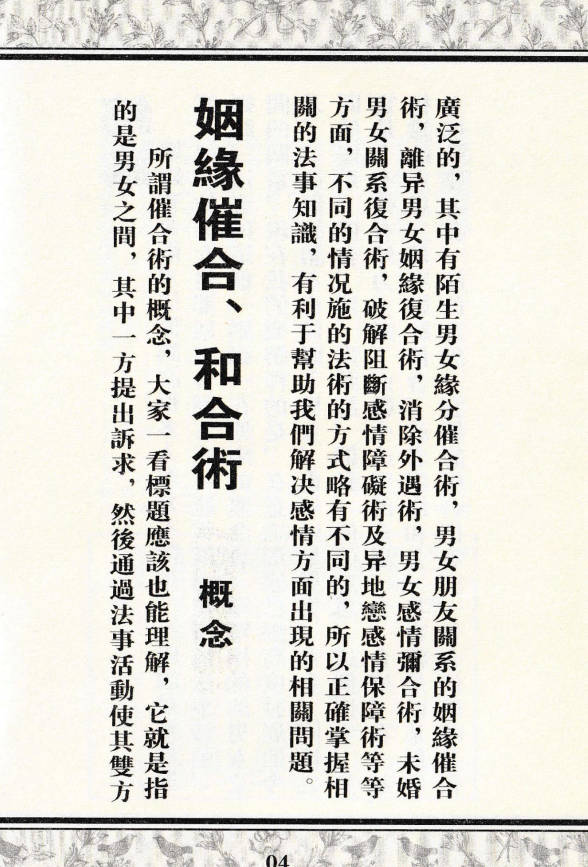 廣泛的，其中有陌生男女緣分催合術，男女朋友關系的姻緣催合
術，離异男女姻緣復合術，消除外遇術，男女感情彌合術，未婚
男女關系復合術，破解阻斷感情障礙術及异地戀感情保障術等等
方面，不同的情况施的法術的方式略有不同的，所以正確掌握相
關的法事知識，有利于幫助我們解决感情方面出現的相關問題。
姻緣催合、和合術 概念
所謂催合術的概念，大家一看標題應該也能理解，它就是指
的是男女之間，其中一方提出訴求，然後通過法事活動使其雙方
04